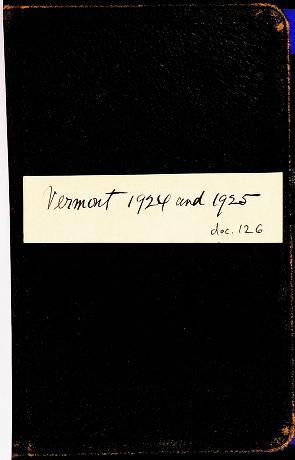 Vermont 1924 and 1925
doc. 126